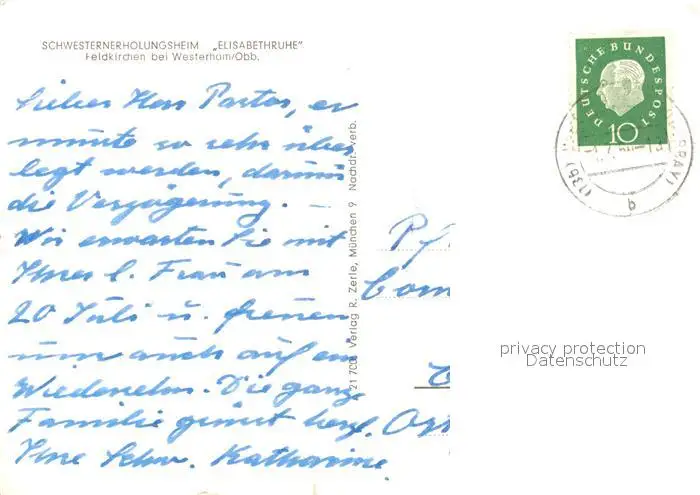 SCHWESTERNERHOLUNGSHEIM „ELISABETHRUHE"
Feldkirchen bei Westerham/Obb.
Lieber Herr Pastor, es
musste so sehr über
legt werden, darum
die Verzögerung. –
Wir erwarten Sie mit
Ihrer l. Frau am
20 Juli u. freuen
uns auch auf ein
Wiedersehn. Die ganze
Familie grüsst herzl.
Ihre Schw. Katharine.
21 700 Verlag R. Zerle, München 9 Nachdr. verb.
Pf
Com
DEUTSCHE BUNDESPOST
10
(13b)
BRAY)
b
privacy protection
Datenschutz